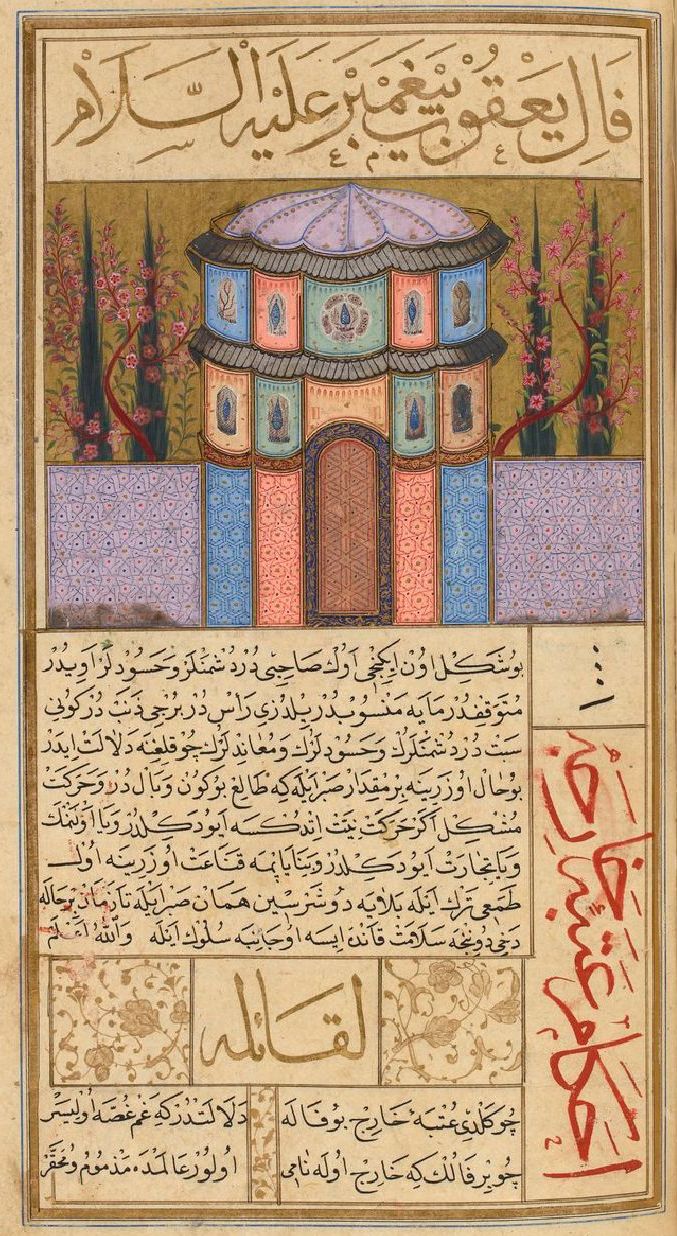 فَالِ يَعْقُوبْ پَيْغَمْبَرْ عَلَيْهِ السَّلَامْ
بو شكل اون ايكنجى اولك صاحبى در دشمنلر و حسودلر اويدر
متوقفدر مايه منسوبدر يلدزى راس در برجى ذنب در كونى
سبت در دشمنلرك و حسودلرك و معاندلرك چوقلغنه دلالت ايدر
بو حال اوزرينه بر مقدار صبر ايله كه طالع بوكون وبال در و حركت
مشكل اكر حركت نيت اندكسه ايو دكلدر ويا اولنمك
ويا تجارت ايو دكلدر و بنا يا پمه قناعت اوزرينه اول
طمعى ترك ايله بلايه دوشرسين همان صبر ايله تا زمان بو حاله
دخى دونجه سلامت قانده ايسه او جانبه سلوك ايله والله اعلم
احكام عتبة خارجه
لقائله
چو كلدى عتبهٔ خارج بو فاله
دلالتدر كه غم غصه اوليسر
چو بر فالك كه خارج اوله نامى
اولور عالمده مذموم و محقر